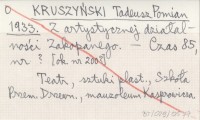 O KRUSZYŃSKI Tadeusz Pomian
1933. Z artystycznej działal-
ności Zakopanego. — Czas 85,
nr ? [ok nr 200]
Teatr, sztuki plast., Szkoła
Przem. Drzewn., mauzoleum Kasprowicza.